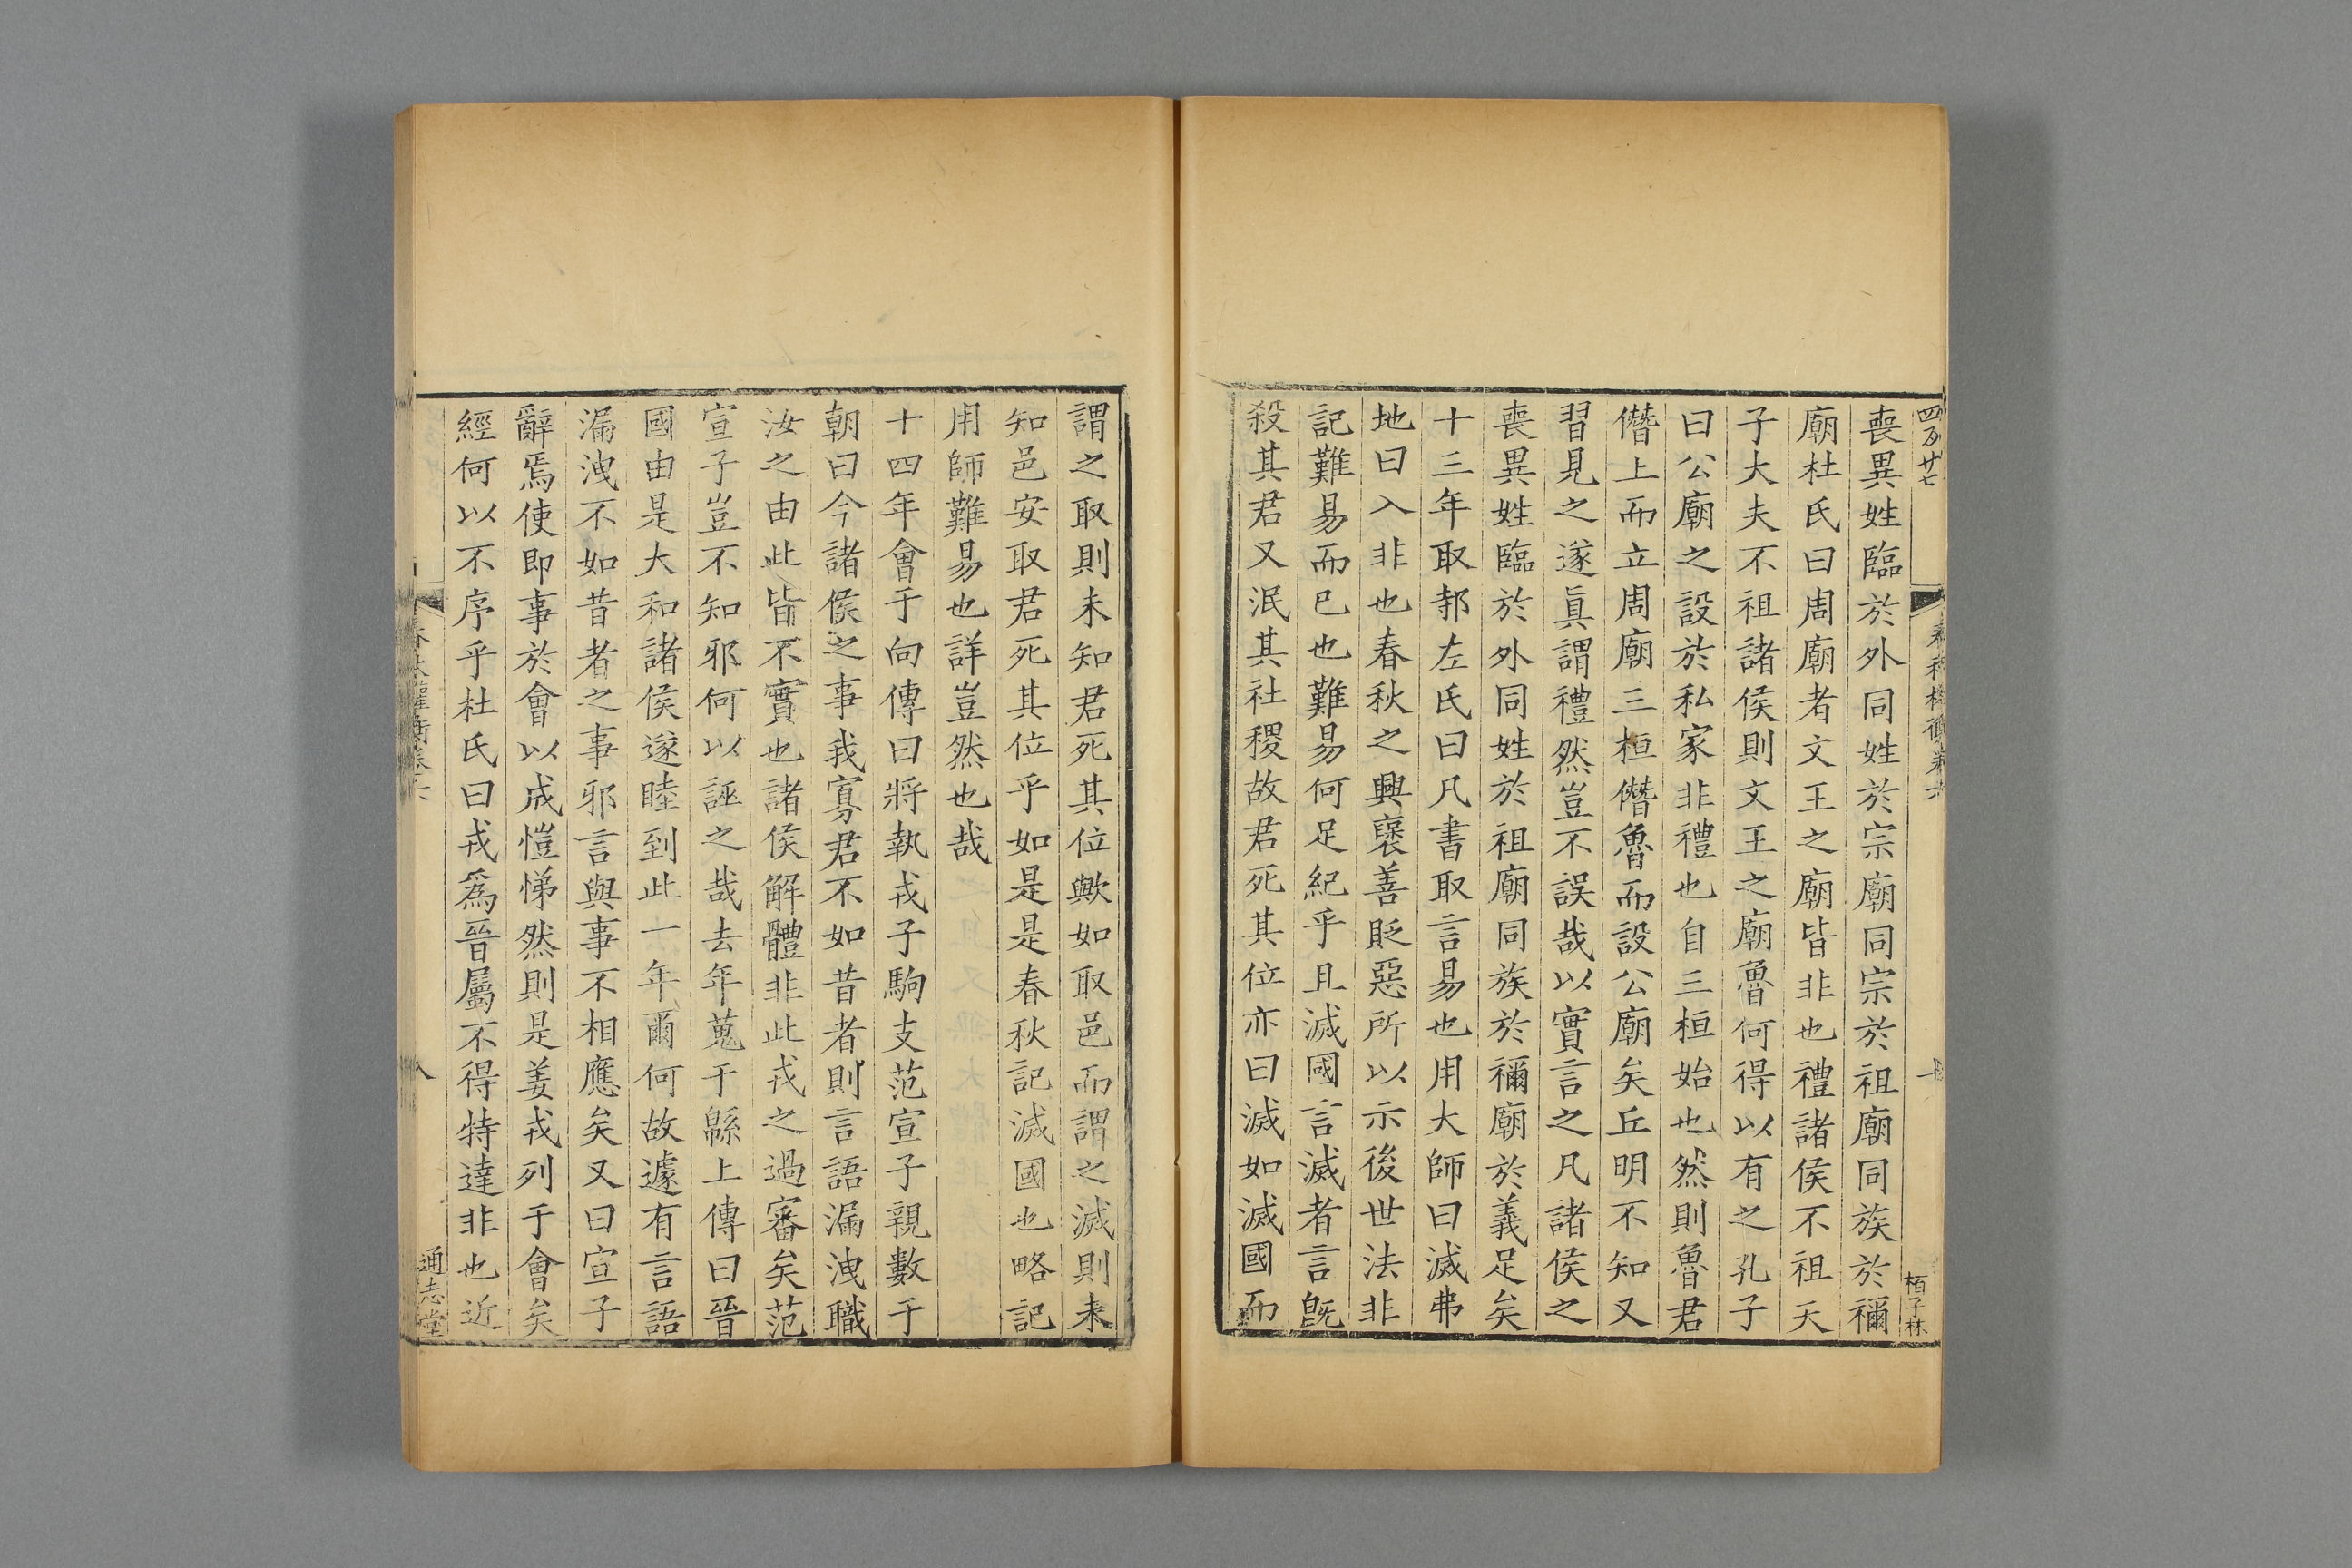 喪異姓臨於外同姓於宗廟同宗於祖廟同族於禰
廟杜氏曰周廟者文王之廟皆非也禮諸侯不祖天
子大夫不祖諸侯則文王之廟魯何得以有之孔子
曰公廟之設於私家非禮也自三桓始也然則魯君
僭上而立周廟三桓僭魯而設公廟矣丘明不知又
習見之遂眞謂禮然豈不誤哉以實言之凡諸侯之
喪異姓臨於外同姓於祖廟同族於禰廟於義足矣
十三年取邿左氏曰凡書取言易也用大師曰滅弗
地曰入非也春秋之興襃善貶惡所以示後世法非
記難易而已也難易何足紀乎且滅國言滅者言旣
殺其君又泯其社稷故君死其位亦曰滅如滅國而
栢子林
謂之取則未知君死其位歟如取邑而謂之滅則未
知邑安取君死其位乎如是是春秋記滅國也略記
用師難易也詳豈然也哉
十四年會于向傳曰將執戎子駒支范宣子親數于
朝曰今諸侯之事我寡君不如昔者則言語漏洩職
汝之由此皆不實也諸侯解體非此戎之過審矣范
宣子豈不知邪何以誣之哉去年蒐于緜上傳曰晉
國由是大和諸侯遂睦到此一年爾何故遽有言語
漏洩不如昔者之事邪言與事不相應矣又曰宣子
辭焉使即事於會以成愷悌然則是姜戎列于會矣
經何以不序乎杜氏曰戎爲晉屬不得特達非也近
春秋權衡卷六
八
通志堂